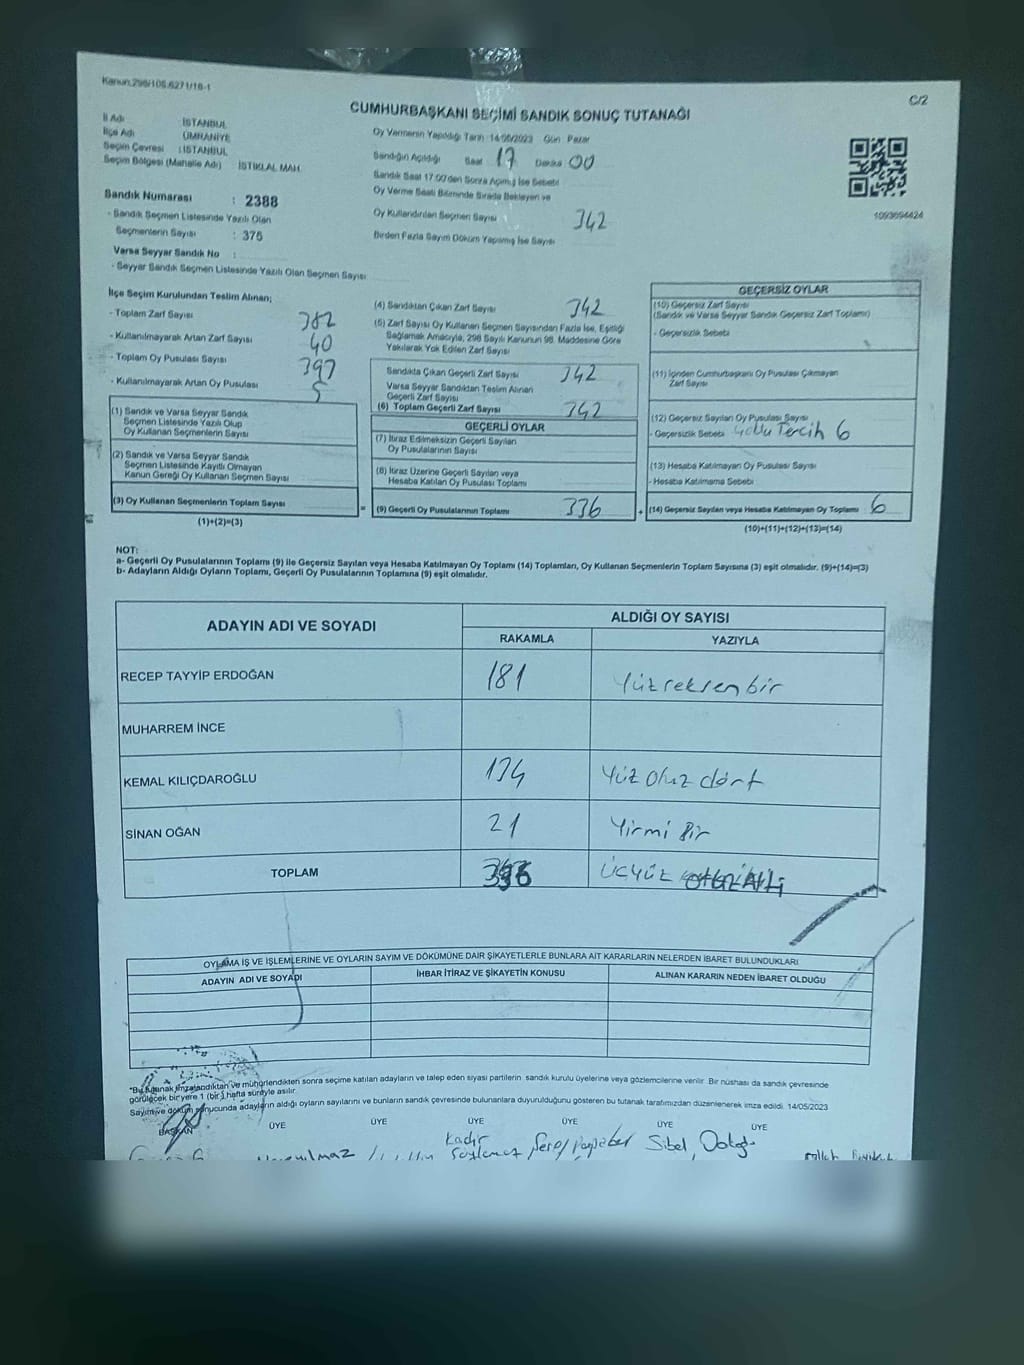 Kanun:298/105,6271/18-1
C/2
CUMHURBAŞKANI SEÇİMİ SANDIK SONUÇ TUTANAĞI
İl Adı : İSTANBUL
İlçe Adı ÜMRANİYE
Seçim Çevresi : İSTANBUL
Seçim Bölgesi (Mahalle Adı) : İSTİKLAL MAH.
Oy Vermenin Yapıldığı Tarih :14/05/2023 Gün Pazar
Sandığın Açıldığı Saat 17 Dakika 00
Sandık Saat 17:00'den Sonra Açılmış İse Sebebi
Oy Verme Saati Bitiminde Sırada Bekleyen ve
Oy Kullandırılan Seçmen Sayısı 342
Birden Fazla Sayım Döküm Yapılmış İse Sayısı
1093694424
Sandık Numarası : 2388
- Sandık Seçmen Listesinde Yazılı Olan
Seçmenlerin Sayısı : 375
Varsa Seyyar Sandık No :
- Seyyar Sandık Seçmen Listesinde Yazılı Olan Seçmen Sayısı
İlçe Seçim Kurulundan Teslim Alınan;
- Toplam Zarf Sayısı 382
- Kullanılmayarak Artan Zarf Sayısı 40
- Toplam Oy Pusulası Sayısı 397
- Kullanılmayarak Artan Oy Pusulası 5
(1) Sandık ve Varsa Seyyar Sandık
Seçmen Listesinde Yazılı Olup
Oy Kullanan Seçmenlerin Sayısı
(2) Sandık ve Varsa Seyyar Sandık
Seçmen Listesinde Kayıtlı Olmayan
Kanun Gereği Oy Kullanan Seçmen Sayısı
(3) Oy Kullanan Seçmenlerin Toplam Sayısı
(1)+(2)=(3)
=
(4) Sandıktan Çıkan Zarf Sayısı 342
(5) Zarf Sayısı Oy Kullanan Seçmen Sayısından Fazla İse, Eşitliği
Sağlamak Amacıyla, 298 Sayılı Kanunun 98. Maddesine Göre
Yakılarak Yok Edilen Zarf Sayısı
Sandıkta Çıkan Geçerli Zarf Sayısı 342
Varsa Seyyar Sandıktan Teslim Alınan
Geçerli Zarf Sayısı
(6) Toplam Geçerli Zarf Sayısı 342
GEÇERLİ OYLAR
(7) İtiraz Edilmeksizin Geçerli Sayılan
Oy Pusulalarının Sayısı
(8) İtiraz Üzerine Geçerli Sayılan veya
Hesaba Katılan Oy Pusulası Toplamı
(9) Geçerli Oy Pusulalarının Toplamı 336
+
GEÇERSİZ OYLAR
(10) Geçersiz Zarf Sayısı
(Sandık ve Varsa Seyyar Sandık Geçersiz Zarf Toplamı)
- Geçersizlik Sebebi
(11) İçinden Cumhurbaşkanı Oy Pusulası Çıkmayan
Zarf Sayısı
(12) Geçersiz Sayılan Oy Pusulası Sayısı
- Geçersizlik Sebebi Tercih 6
(13) Hesaba Katılmayan Oy Pusulası Sayısı
- Hesaba Katılmama Sebebi
(14) Geçersiz Sayılan veya Hesaba Katılmayan Oy Toplamı 6
(10)+(11)+(12)+(13)=(14)
NOT:
a- Geçerli Oy Pusulalarının Toplamı (9) ile Geçersiz Sayılan veya Hesaba Katılmayan Oy Toplamı (14) Toplamları, Oy Kullanan Seçmenlerin Toplam Sayısına (3) eşit olmalıdır. (9)+(14)=(3)
b- Adayların Aldığı Oyların Toplamı, Geçerli Oy Pusulalarının Toplamına (9) eşit olmalıdır.
ADAYIN ADI VE SOYADI ALDIĞI OY SAYISI
RAKAMLA YAZIYLA
RECEP TAYYİP ERDOĞAN 181 Yüz seksen bir
MUHARREM İNCE
KEMAL KILIÇDAROĞLU 134 Yüz otuz dört
SİNAN OĞAN 21 Yirmi Bir
TOPLAM 336 ÜÇYÜZ
OYLAMA İŞ VE İŞLEMLERİNE VE OYLARIN SAYIM VE DÖKÜMÜNE DAİR ŞİKAYETLERLE BUNLARA AİT KARARLARIN NELERDEN İBARET BULUNDUKLARI
ADAYIN ADI VE SOYADI İHBAR İTİRAZ VE ŞİKAYETİN KONUSU ALINAN KARARIN NEDEN İBARET OLDUĞU
*Bu tutanak imzalandıktan ve mühürlendikten sonra seçime katılan adayların ve talep eden siyasi partilerin sandık kurulu üyelerine veya gözlemcilerine verilir. Bir nüshası da sandık çevresinde
görülecek bir yere 1 (bir) hafta süreyle asılır.
Sayım ve döküm sonucunda adayların aldığı oyların sayılarını ve bunların sandık çevresinde bulunanlara duyurulduğunu gösteren bu tutanak tarafımızdan düzenlenerek imza edildi. 14/05/2023
BAŞKAN ÜYE ÜYE ÜYE ÜYE ÜYE ÜYE
Kadir
Sibel